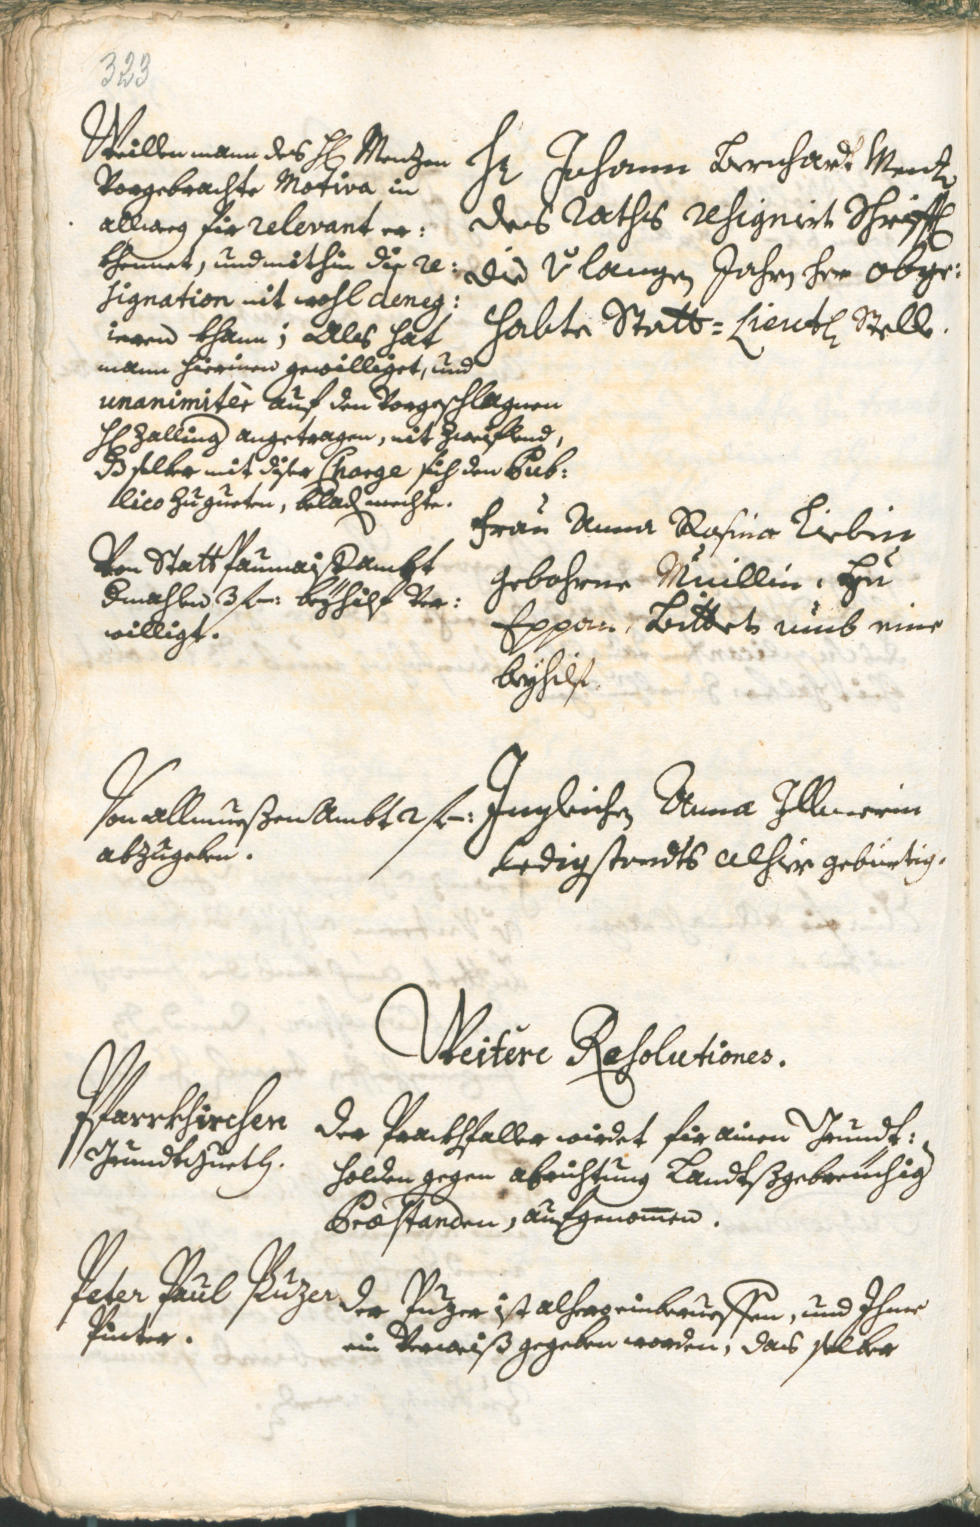 323
Weillen mann des H: Mentzen
Vorgebrachte Motiva in
allweg für relevant er:
khennet, und mithin die re:
signation nit wohl deneg:
ieren khann; Als hat
mann hierinen gewilliget, und
unanimiter auf den Vorgeschlagnen
H: Zalling angetragen, nit zweiflend,
selber mit diser Charge sich den Pub:
lico zu gueten, beladen mechte.
Hr Johann Bernhardt Mentz
des Raths resigniert Schrifftl:
die lange Jahr her obge:
habte Statt-Lieutl: Stell.
Von Statt Paumaisterambt
dermahlen 3 f: beyhilf Ver:
willigt.
Frau Anna Rosina Liebin
gebohrne Müllin, zu
Eppan, Bittet umb eine
beyhilf.
Von allmueßen Ambt 2 f:
abzugeben.
Ingleichen Anna Illmerin
ledig standts alhier gebürtig.
Weitere Resolutiones.
Pfarrkhirchen
Grundtzinsl:
Der wirdet für ainen Grundt:
holden gegen abrichtung Landtsgebreuchig
Præstanden, aufgenomen.
Peter Paul Puzer
Pinter.
Der Puzer ist alhero einberueffen, und Ihme
ein Verweiß gegeben worden, das selber